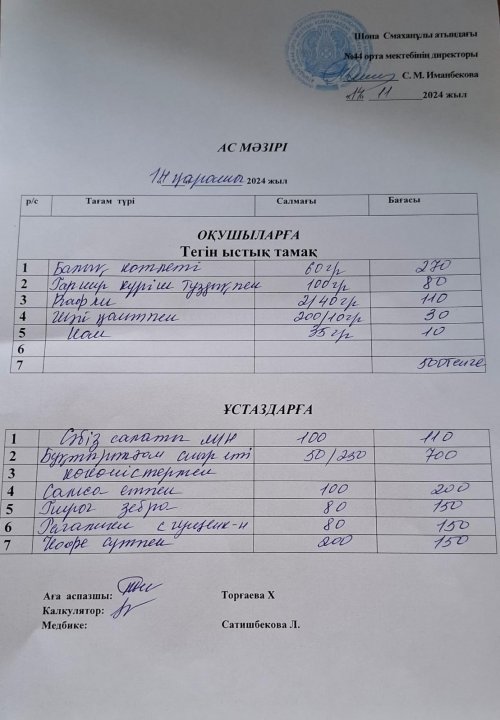 Шона Смаханұлы атындағы
№44 орта мектебінің директоры
С. М. Иманбекова
14 11 2024 жыл
АС МӘЗІРІ
14 қараша 2024 жыл
р/с Тағам түрі Салмағы Бағасы
ОҚУШЫЛАРҒА
Тегін ыстық тамақ
1 Балық котлеті 60гр 270
2 Гарнир күріш тұздықпен 100гр 80
3 Вафли 2/40гр 110
4 Шәй қантпен 200/10гр 30
5 Нан 35гр 10
6
7 500теңге
ҰСТАЗДАРҒА
1 Сәбіз салаты 100 110
2 Бұқтырған сиыр еті 50/250 700
3 көкөністермен
4 Самса етпен 100 200
5 Пирог зебра 80 150
6 Рагалики с 80 150
7 Кофе сүтпен 200 150
Аға аспазшы: Торғаева Х
Калкулятор:
Медбике: Сатишбекова Л.